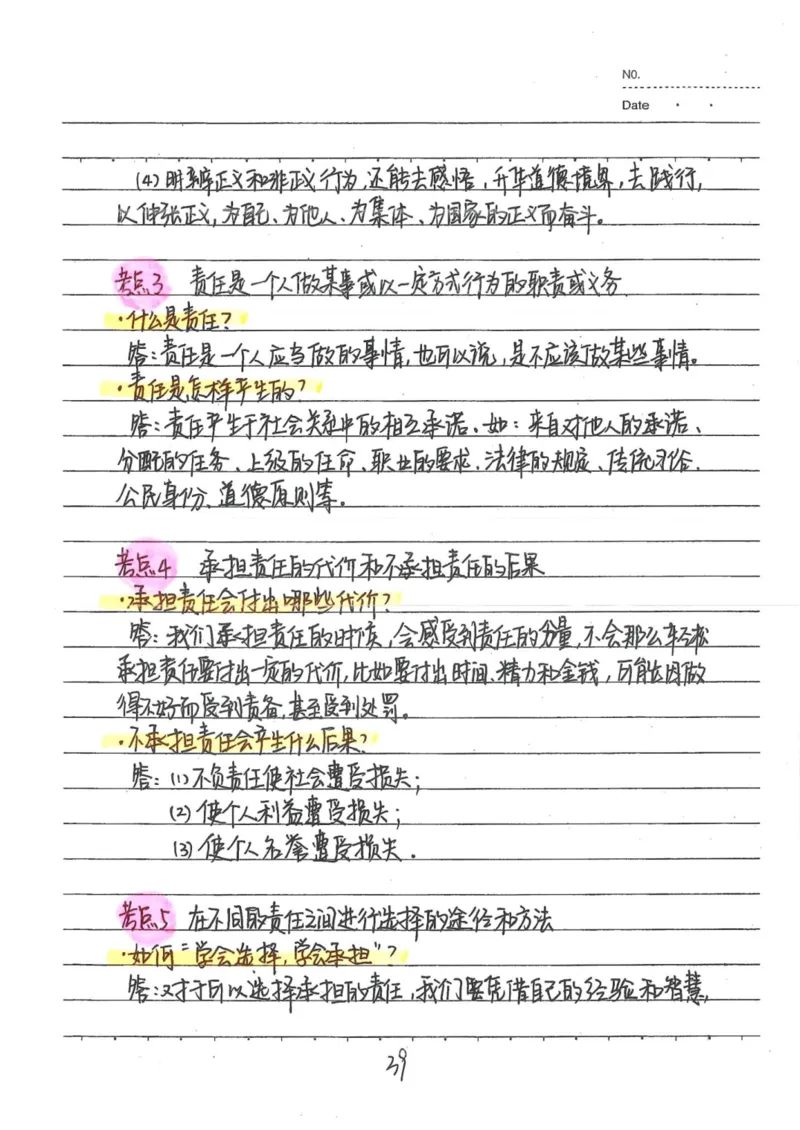 NO.
Date
(4)明辨正义和非正义行为,还能去感悟,升华道德境界,去践行,
以伸张正义,为自己、为他人、为集体、为国家的正义而奋斗。
考点3 责任是一个人做某事或以一定方式行为的职责或义务
·什么是责任?
答:责任是一个人应当做的事情,也可以说,是不应该做某些事情。
·责任是怎样产生的?
答:责任产生于社会关系中的相互承诺、如:来自对他人的承诺、
分配的任务、上级的任命、职业的要求、法律的规定、传统习俗、
公民身份、道德原则等。
考点4 承担责任的代价和不承担责任的后果
·承担责任会付出哪些代价?
答:我们承担责任的时候,会感受到责任的分量,不会那么轻松
承担责任要付出一定的代价,比如要付出时间、精力和金钱,可能因做
得不好而受到责备,甚至受到处罚。
·不承担责任会产生什么后果?
答:(1)不负责任使社会遭受损失;
(2)使个人利益遭受损失;
(3)使个人名誉遭受损失.
考点5 在不同的责任之间进行选择的途径和方法
·如何“学会选择,学会承担”?
答:对于可以选择承担的责任,我们要凭借自己的经验和智慧,
39